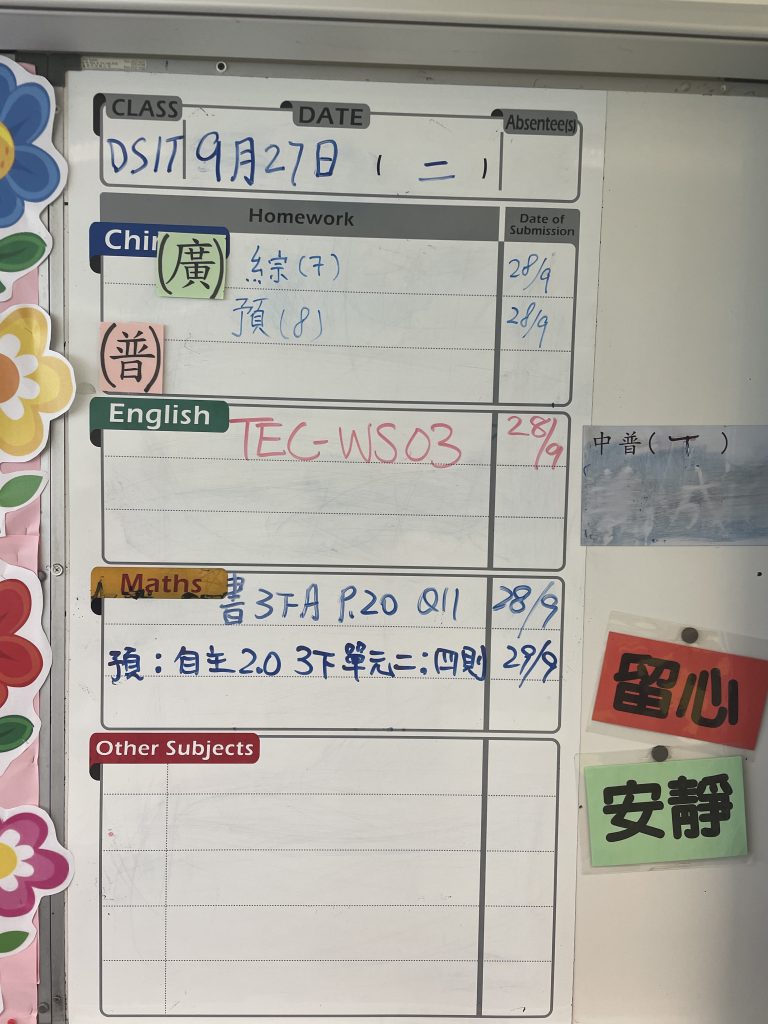 CLASS DATE Absentee(s)
DSIT 9月27日 (二)
Homework Date of Submission
Chin
(廣) 綜(7) 28/9
預(8) 28/9
(普)
English
TEC-WS03 28/9
中普(下)
Maths
書3下A P.20 Q11 28/9
預:自主2.0 3下單元二:四則 29/9
留心
Other Subjects
安靜